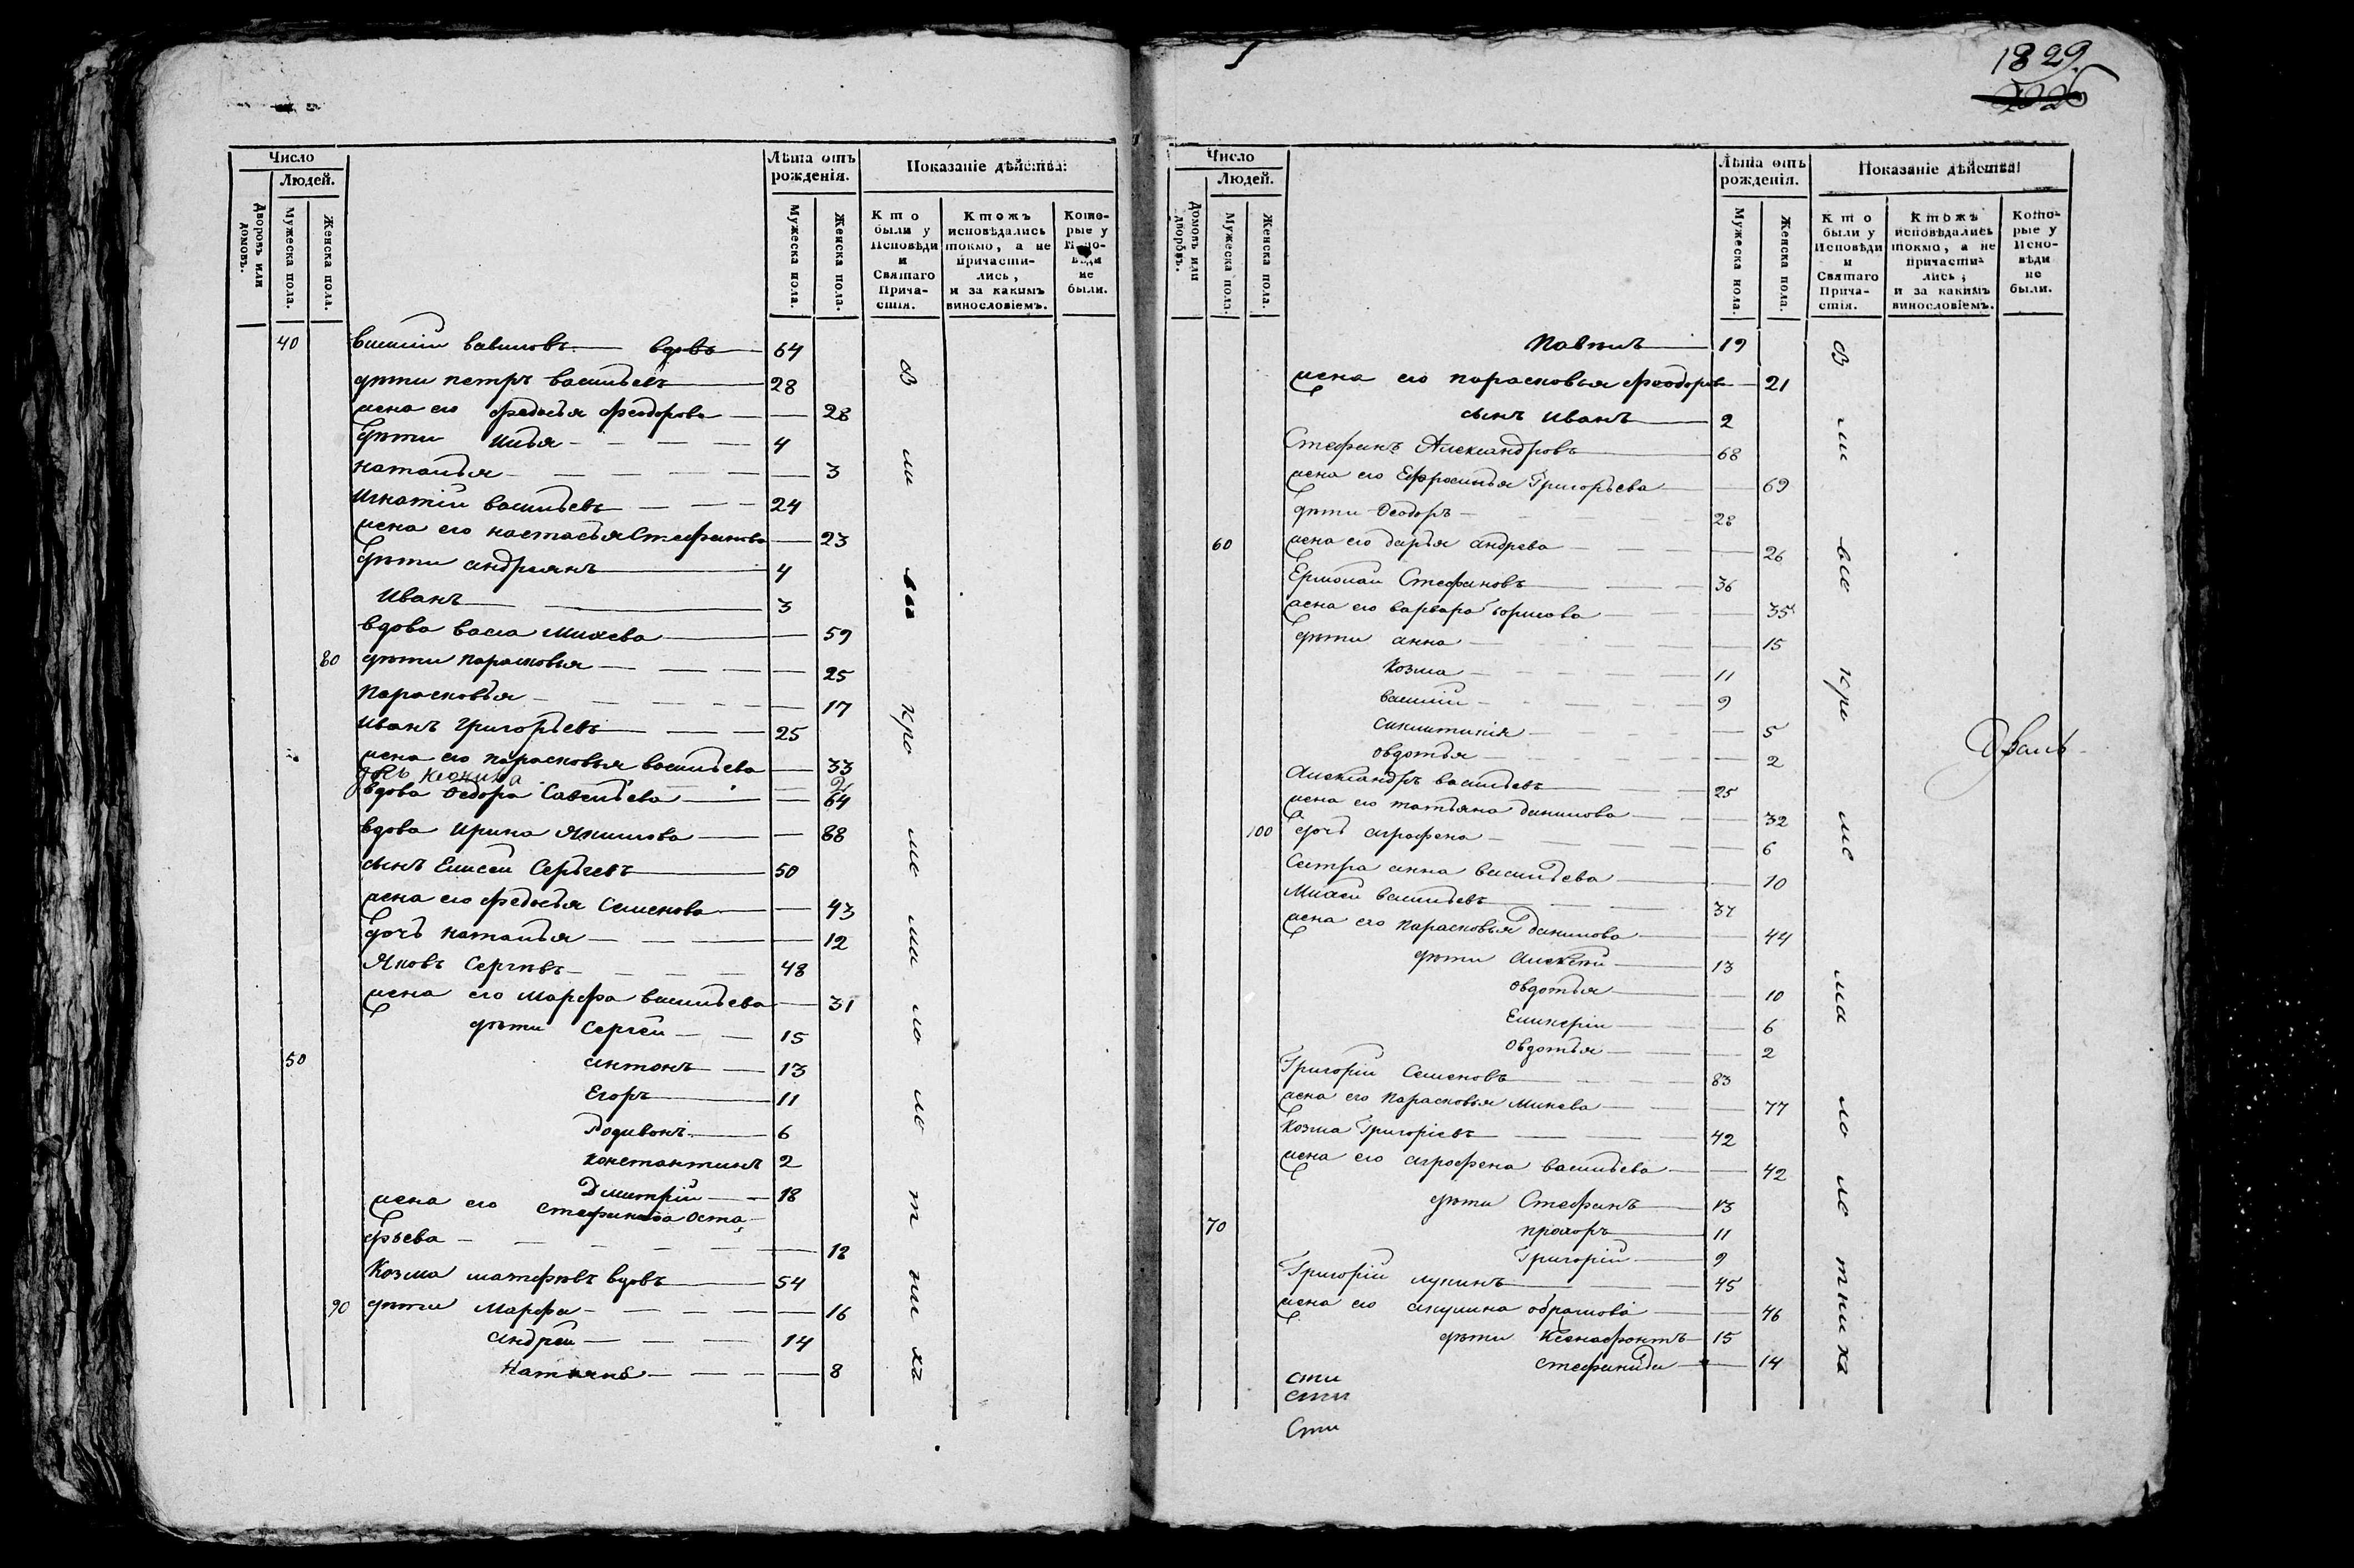 Число
Людей.
Дворовъ или домовъ.
Мужеска пола.
Женска пола.
Лѣта отъ рожденія.
Мужеска пола.
Женска пола.
Показаніе дѣйства:
Кто были у Исповѣди и Святаго Прича-стія.
Ктожъ исповѣдались токмо, а не причасти-лись, и за какимъ винословіемъ.
Кото-рые у Испо-вѣди не были.
40 василій вавиловъ вдовъ 64
дѣти петръ васильевъ 28
жена его федосья феодорова 28
дѣти илья 4
наталья 3
игнатій васильевъ 24
жена его настасья Стефанова 23
дѣти андреянъ 4
иванъ 3
вдова васса михеева 59
80 дѣти парасковья 25
парасковья 17
иванъ григорьевъ 25
жена его парасковья васильева 33
2
вдова Ѳедора Савельева 64
вдова ирина якимова 88
сынъ Елисей Сергѣевъ 50
жена его федосья Семенова 43
дочь наталья 12
яковъ Сергѣевъ 48
жена его марфа васильева 31
дѣти сергей 15
50 антонъ 13
Егоръ 11
Родивонъ 6
константинъ 2
Дмитрій 18
жена его стефанида оста-
фьева 18
Козма матфѣевъ вдовъ 54
90 дѣти марфа 16
андрей 14
8
1829.
Число
Людей.
Домовъ или дворовъ.
Мужеска пола.
Женска пола.
Лѣта отъ рожденія.
Мужеска пола.
Женска пола.
Показаніе дѣйства:
Кто были у Исповѣди и Святаго Прича-стія.
Ктожъ исповѣдались токмо, а не причасти-лись, и за какимъ винословіемъ.
Кото-рые у Испо-вѣди не были.
павилъ 19
жена его парасковья феодорова 21
сынъ иванъ 2
Стефанъ Александровъ 68
жена его Ефросинья Григорьева 69
дѣти Ѳеодоръ 28
60 жена его дарья андрева 26
Ермолай Стефановъ 36
жена его варвара борисова 35
дѣти анна 15
козма 11
василій 9
синклитикія 5
овдотья 2
Александръ васильевъ 25
жена его татьяна данилова 32
100 дочь аграфена 6
Сестра анна васильева 10
Михей васильевъ 37
жена его парасковья данилова 44
дѣти алексѣй 13
овдотья 10
6
овдотья 2
Григорій Семеновъ 83
жена его парасковья минева 77
козма Григоріевъ 42
жена его аграфена васильева 42
дѣти Стефанъ 13
70 прохоръ 11
Григорій 9
Григорій лукинъ 45
жена его акулина обрамова 46
дѣти Ксенофонтъ 15
стефанида 14
сти
сти
Сти